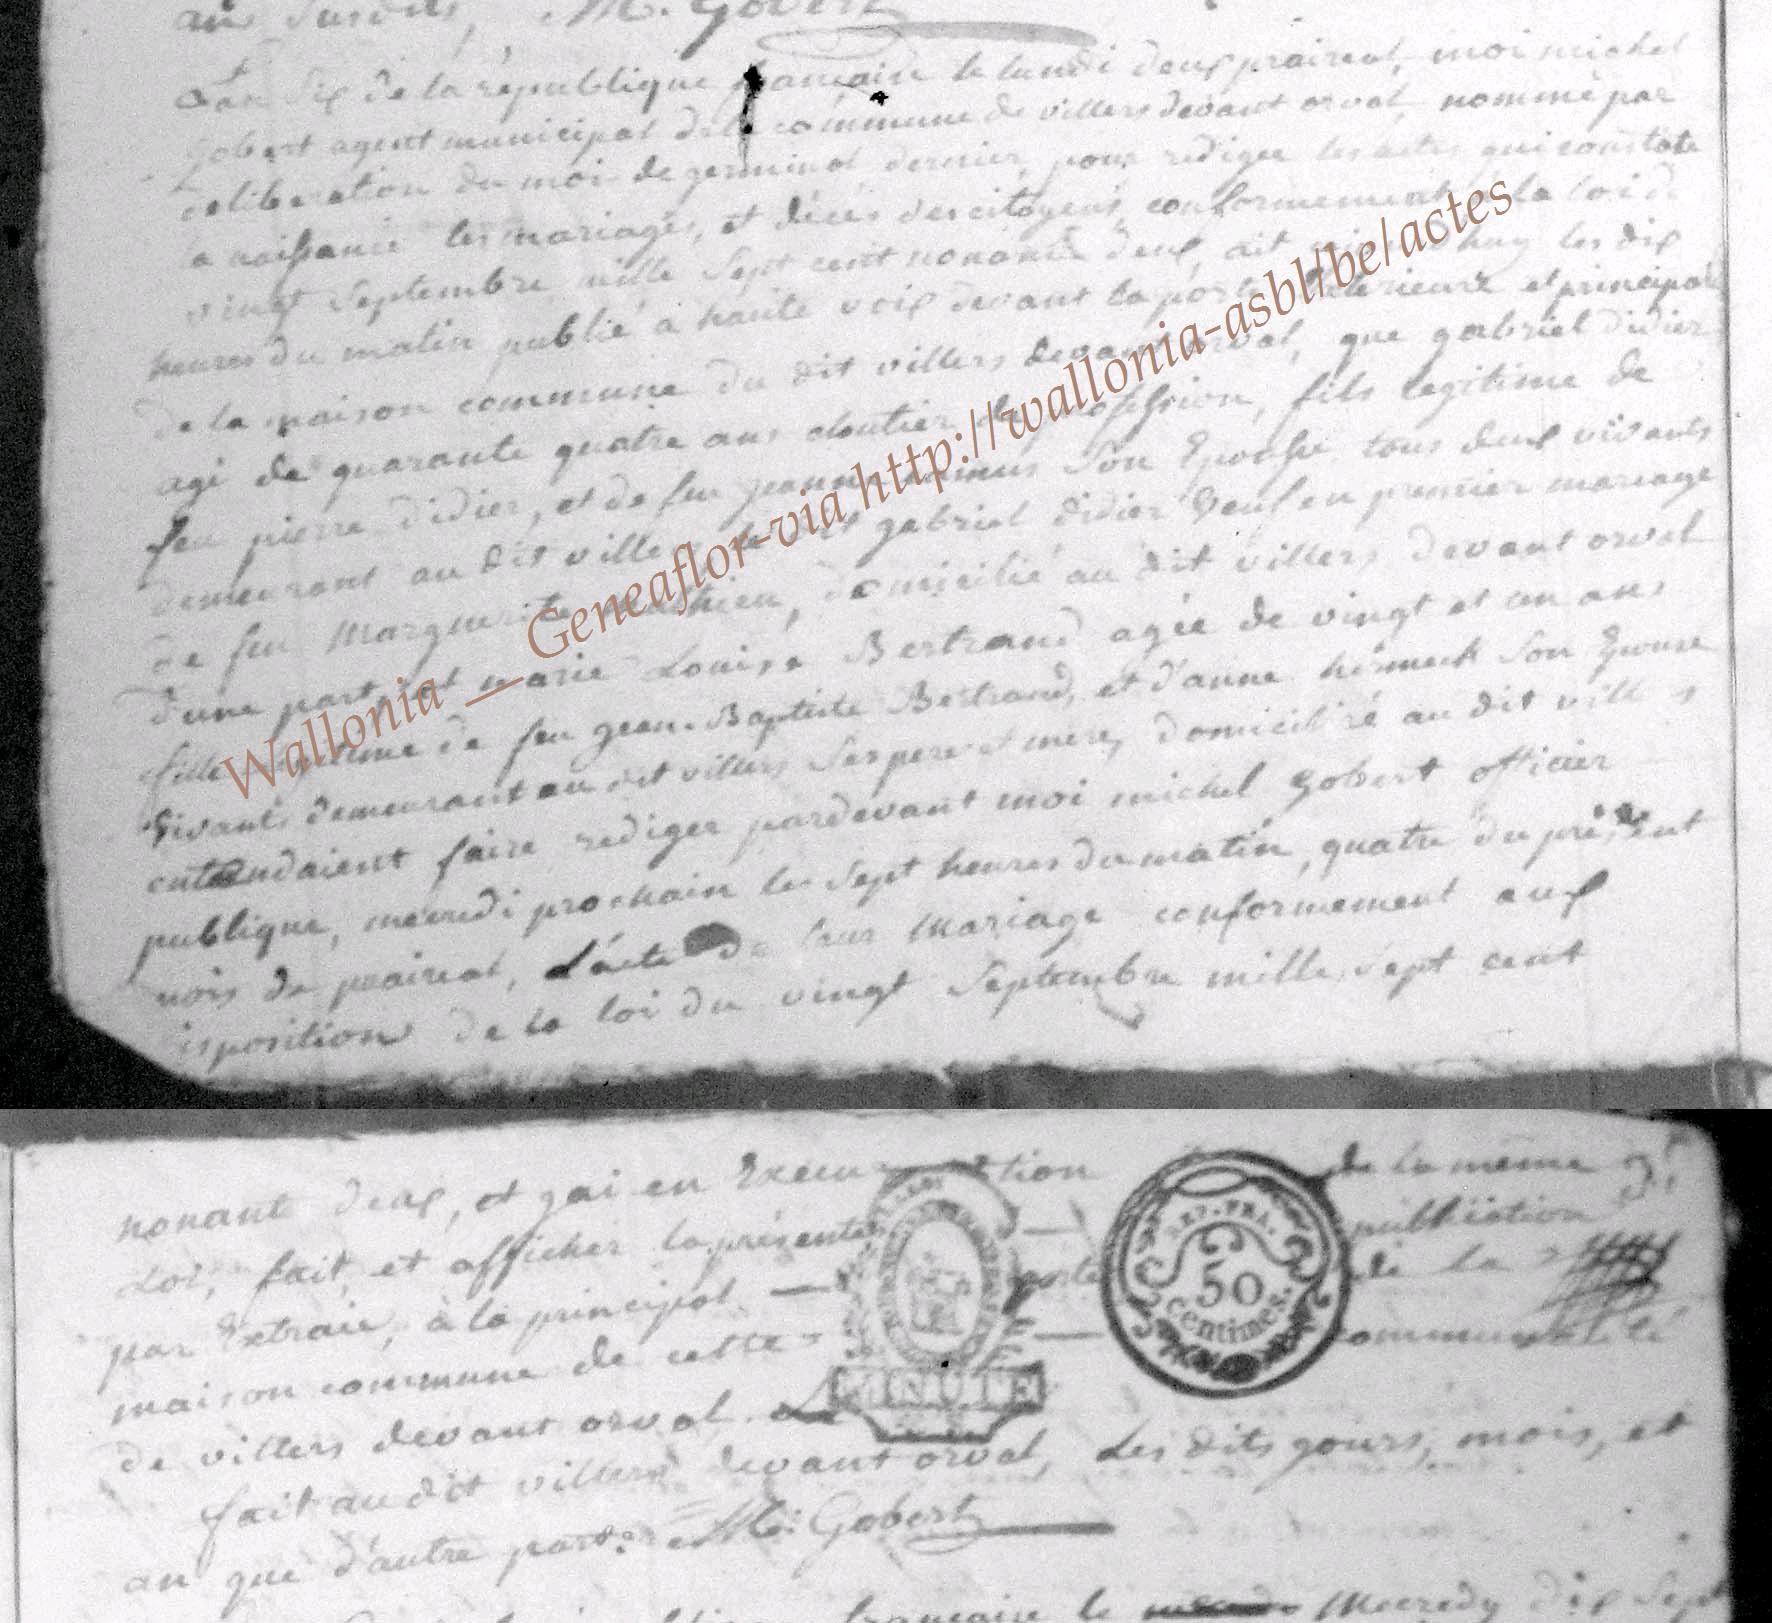 an susdits, M. Gobert
L'an six de la république française le lundi deux prairéal, moi michel
gobert agent municipal de la commune de villers devant orval, nommé par
deliberation du moi de germinal dernier, pour rediger les actes qui constate
la naissance les mariages, et décès des citoyens, conformement a la loi du
vingt septembre mille sept cent nonante deux, ait huy les dix
heures du matin publié a haute voix devant la porte exterieure et principale
de la maison commune du dit villers devant orval, que gabriel didier
agé de quarante quatre ans cloutier de profession, fils legitime de
feu pierre didier, et de feu jeanne son Epouse tous deux vivants
demeurant au dit villers, le dit gabriel didier veuf en premier mariage
de feu Marguerite mathieu, domicilié au dit villers devant orval
d'une part, et marie Louise Bertrand agée de vingt et un ans
fille legitime de feu gean-Baptiste Bertrand, et d'anne son Epouse
vivants demeurant au dit villers ses pere et mere, domicilié au dit villers
entendaient faire rediger pardevant moi michel Gobert officier
publique, mecredi prochain les sept heures du matin, quatre du présent
mois de prairéal, L'acte de leur Mariage conformement aux
isposition de la loi du vingt septembre mille sept cent
nonante deux, et gai en Execution de la même
Loi, fait, et afficher la présente publication
par Extraie, à la principal porte de la
maison commune de cette communalité
de villers devant orval.
REP. FRA.
50
centimes.
MINUTE
fait au dit villers devant orval, Les dits gours, mois, et
an que d'autre part. M. Gobert
française le Mecredy dix sept
Wallonia __ Geneaflor-via http://wallonia-asbl/be/actes